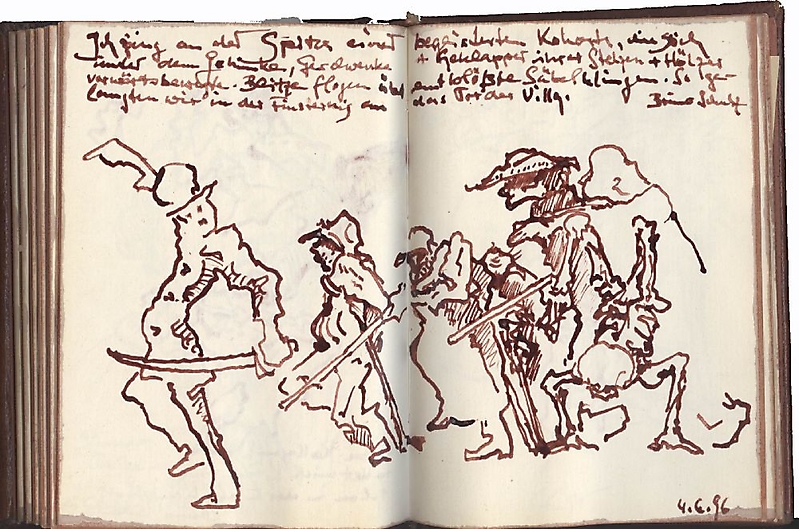 Ich ging an der Spitze einer begeisterten Kohorte, die sich
unter dem Gehinke, Geschwenke + Geklapper ihrer Stelzen + Hölzer
vorwärtsbewegte. Blitze flogen über entblößte Säbelklingen. So ge-
langten wir in der Finsternis an das Tor der Villa. Bruno Schulz
4.6.96